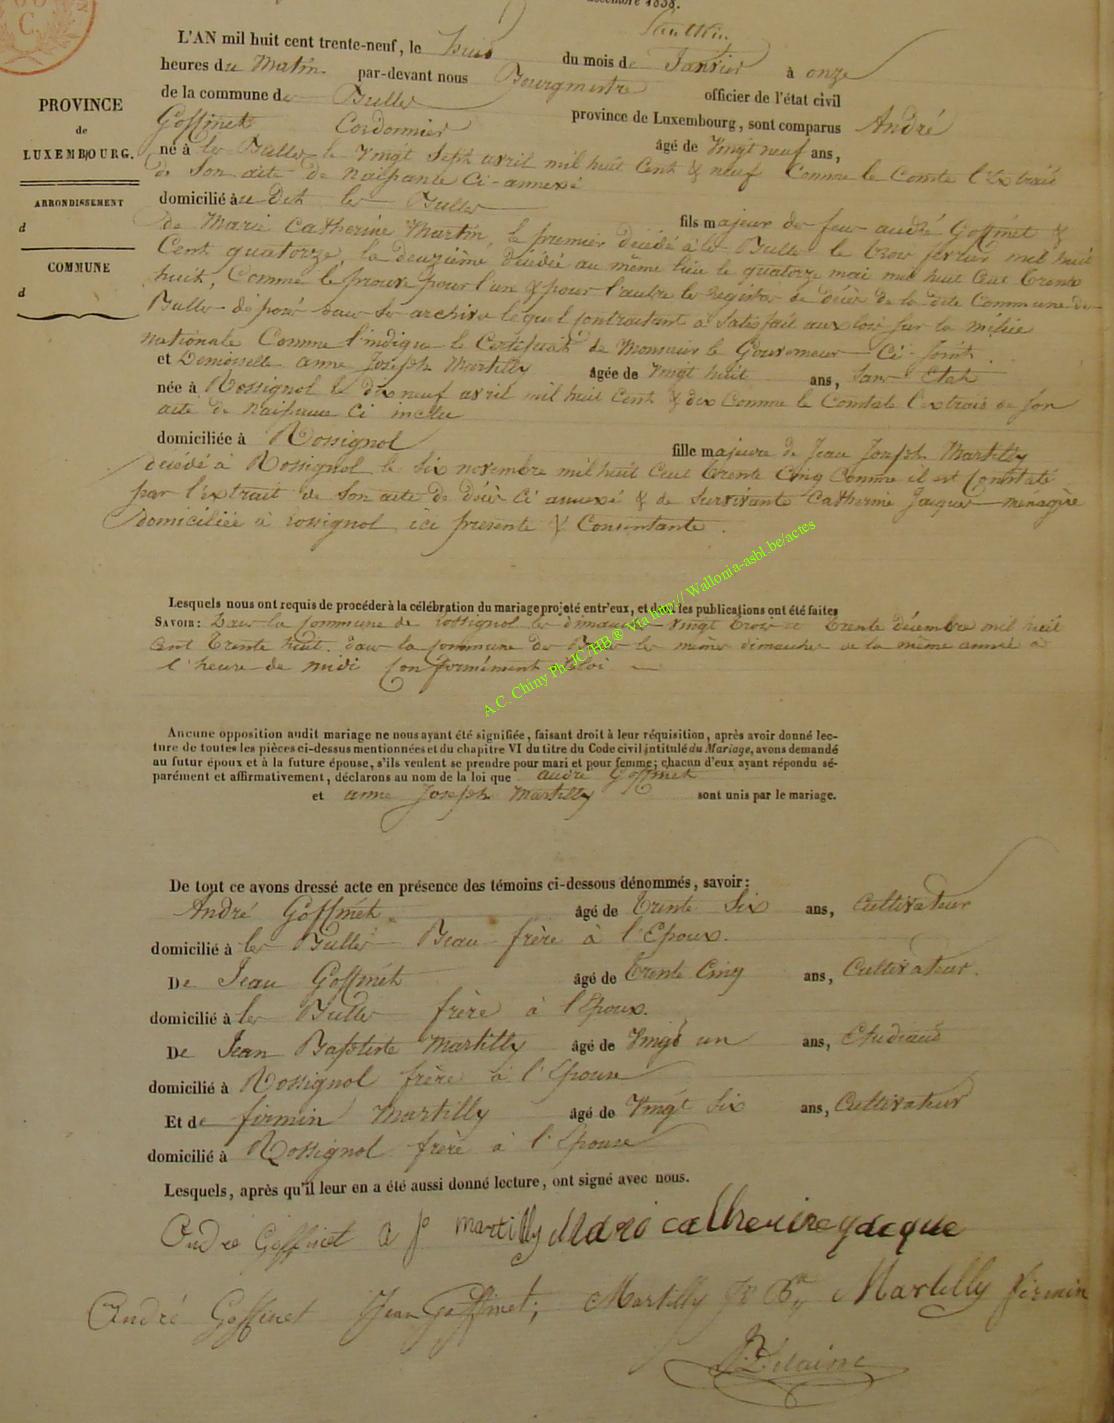 décembre 1838.
C.
L'AN mil huit cent trente-neuf, le huit du mois de Janvier à onze
heures du Matin par-devant nous Bourgmestre officier de l'état civil
PROVINCE
de
LUXEMBOURG.
ARRONDISSEMENT
d
COMMUNE
d
de la commune de Bulles province de Luxembourg, sont comparus André
Goffinet Cordonnier âgé de Vingt neuf ans,
né à les Bulles le vingt Sept avril mil huit Cent & neuf Comme le Conste l'Extrait
de Son acte de naissance Ci-annexé
domicilié au Dit les Bulles fils majeur de feu andré Goffinet &
de Marie Catherine Martin, le premier décédé à les Bulles le trois février mil huit
Cent quatorze, la deuxième décédée au même lieu le quatorze mai mil huit Cent trente
huit, Comme le prouve pour l'un & pour l'autre les registres de décès de la dite Commune de
Bulles déposés dans les archives lequel contractant a Satisfait aux lois sur la milice
nationale Comme l'indique le Certificat de Monsieur le Gouverneur Ci joint.
et Demoiselle anne Joseph Martilly âgée de Vingt huit ans, Sans Etat
née à Rossignol le dix neuf avril mil huit Cent & dix Comme le Constate l'extrait de son
acte de naissance Ci inclu
domiciliée à Rossignol fille majeure de Jean Joseph Martilly
décédé à Rossignol le Six novembre mil huit Cent trente Cinq Comme il est Constaté
par l'extrait de Son acte de décès Ci annexé & de Survivante Catherine Jacques ménagère
Domiciliée à rossignol ici présente & Consentante.
Lesquels nous ont requis de procéder à la célébration du mariage projeté entr'eux, et dont les publications ont été faites
SAVOIR: Dans la Commune de rossignol les dimanches vingt trois et trente décembre mil huit
Cent trente huit. dans la Commune des Bulles les mêmes dimanches de la même année à
l'heure de midi Conformément à la loi
Aucune opposition audit mariage ne nous ayant été signifiée, faisant droit à leur réquisition, après avoir donné lec-
ture de toutes les pièces ci-dessus mentionnées et du chapitre VI du titre du Code civil intitulé du Mariage, avons demandé
au futur époux et à la future épouse, s'ils veulent se prendre pour mari et pour femme; chacun d'eux ayant répondu sé-
parément et affirmativement, déclarons au nom de la loi que andré Goffinet
et anne Joseph Martilly sont unis par le mariage.
De tout ce avons dressé acte en présence des témoins ci-dessous dénommés, savoir:
André Goffinet âgé de Trente Six ans, Cultivateur
domicilié à les Bulles Beau frère à l'Epoux.
De Jean Goffinet âgé de Trente Cinq ans, Cultivateur.
domicilié à les Bulles frère à l'Epoux.
De Jean Baptiste Martilly âgé de Vingt un ans, Etudiant
domicilié à Rossignol frère à l'Epouse
Et de firmin Martilly âgé de Vingt Six ans, Cultivateur
domicilié à Rossignol frère à l'Epouse
Lesquels, après qu'il leur en a été aussi donné lecture, ont signé avec nous.
André Goffinet a j martilly Mari catherine yacque
André Goffinet Jean Goffinet; Martilly Jn Bte Martilly firmin
A.C. Chiny Ph.JC/HB® Via http://Wallonia-asbl.be/actes